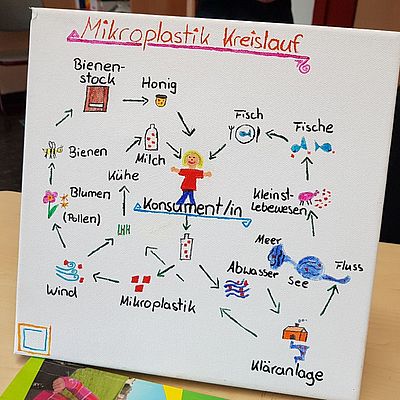 Mikroplastik Kreislauf
Bienen-
stock
Honig
Fisch
Fische
Bienen
Milch
Kühe
Blumen
(Pollen)
Konsument/in
Kleinst-
lebewesen
Meer
Fluss
See
Abwasser
Wind
Mikroplastik
Kläranlage